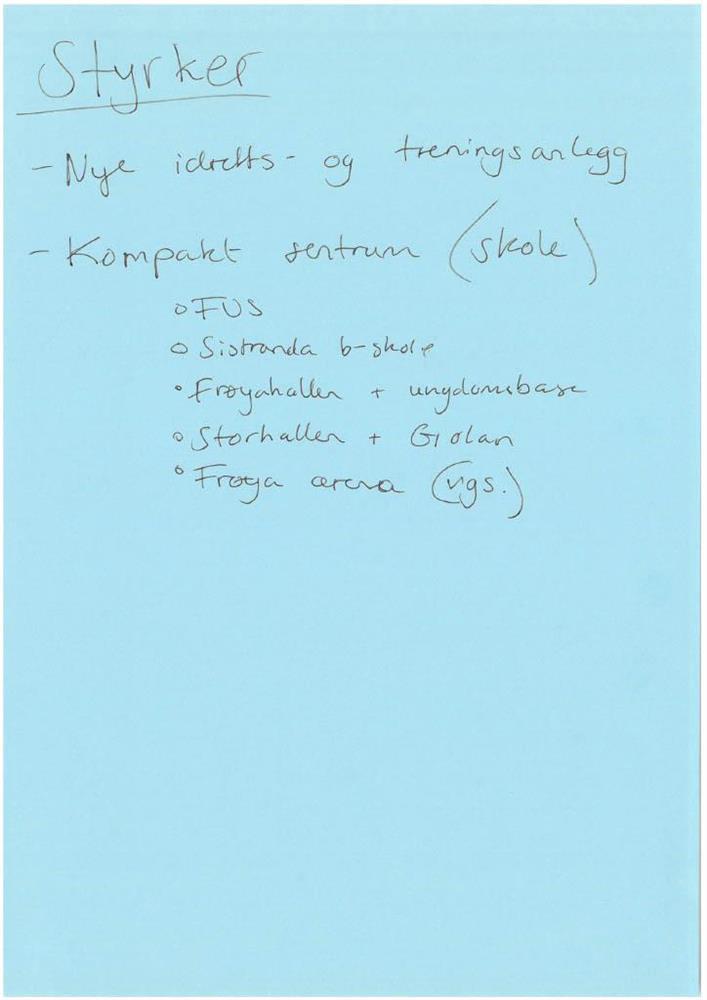 Styrker
- Nye idretts- og treningsanlegg
- Kompakt sentrum (skole)
o FUS
o Sistranda b-skole
o Frøyahallen + ungdomsbase
o Storhallen + Golan
o Frøya arena (vgs.)